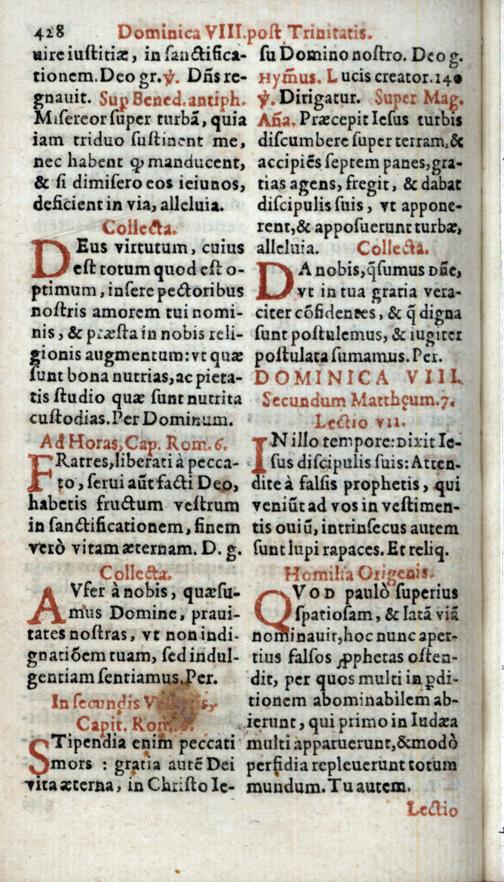 428 Dominica VIII. post Trinitatis.
uire iustitiæ, in sanctifica-
tionem. Deo gr. ℣. Dñs re-
gnauit. Sup Bened. antiph.
Misereor super turbã, quia
iam triduo sustinent me,
nec habent ꝙ manducent,
& si dimisero eos ieiunos,
deficient in via, alleluia.
Collecta.
DEus virtutum, cuius
est totum quod est o-
ptimum, insere pectoribus
nostris amorem tui nomi-
nis, & præsta in nobis reli-
gionis augmentum: vt quæ
sunt bona nutrias, ac pieta-
tis studio quæ sunt nutrita
custodias. Per Dominum.
Ad Horas, Cap. Rom. 6.
FRatres, liberati à pecca-
to, serui aũt facti Deo,
habetis fructum vestrum
in sanctificationem, finem
verò vitam æternam. D. g.
Collecta.
AVfer à nobis, quæsu-
mus Domine, praui-
tates nostras, vt non indi-
gnatiõem tuam, sed indul-
gentiam sentiamus. Per.
In secundis
Capit. Rom.
STipendia enim peccati
mors : gratia autẽ Dei
vita æterna, in Christo Ie-
su Domino nostro. Deo g.
Hymũs. Lucis creator. 140
℣. Dirigatur. Super Mag.
Aña. Præcepit Iesus turbis
discumbere super terram, &
accipiẽs septem panes, gra-
tias agens, fregit, & dabat
discipulis suis, vt appone-
rent, & apposuerunt turbæ,
alleluia. Collecta.
DA nobis, q̃sumus Dñe,
vt in tua gratia vera-
citer cõfidentes, & q̃ digna
sunt postulemus, & iugiter
postulata sumamus. Per.
DOMINICA VIII.
Secundum Matthęum. 7.
Lectio VII.
IN illo tempore: Dixit Ie-
sus discipulis suis: Atten-
dite à falsis prophetis, qui
veniũt ad vos in vestimen-
tis ouiũ, intrinsecus autem
sunt lupi rapaces. Et reliq.
Homilia Origenis.
QVOD paulò superius
spatiosam, & latã viã
nominauit, hoc nunc aper-
tius falsos ꝓphetas osten-
dit, per quos multi in ꝑdi-
tionem abominabilem ab-
ierunt, qui primo in Iudæa
multi apparuerunt, & modò
perfidia repleuerunt totum
mundum. Tu autem.
Lectio